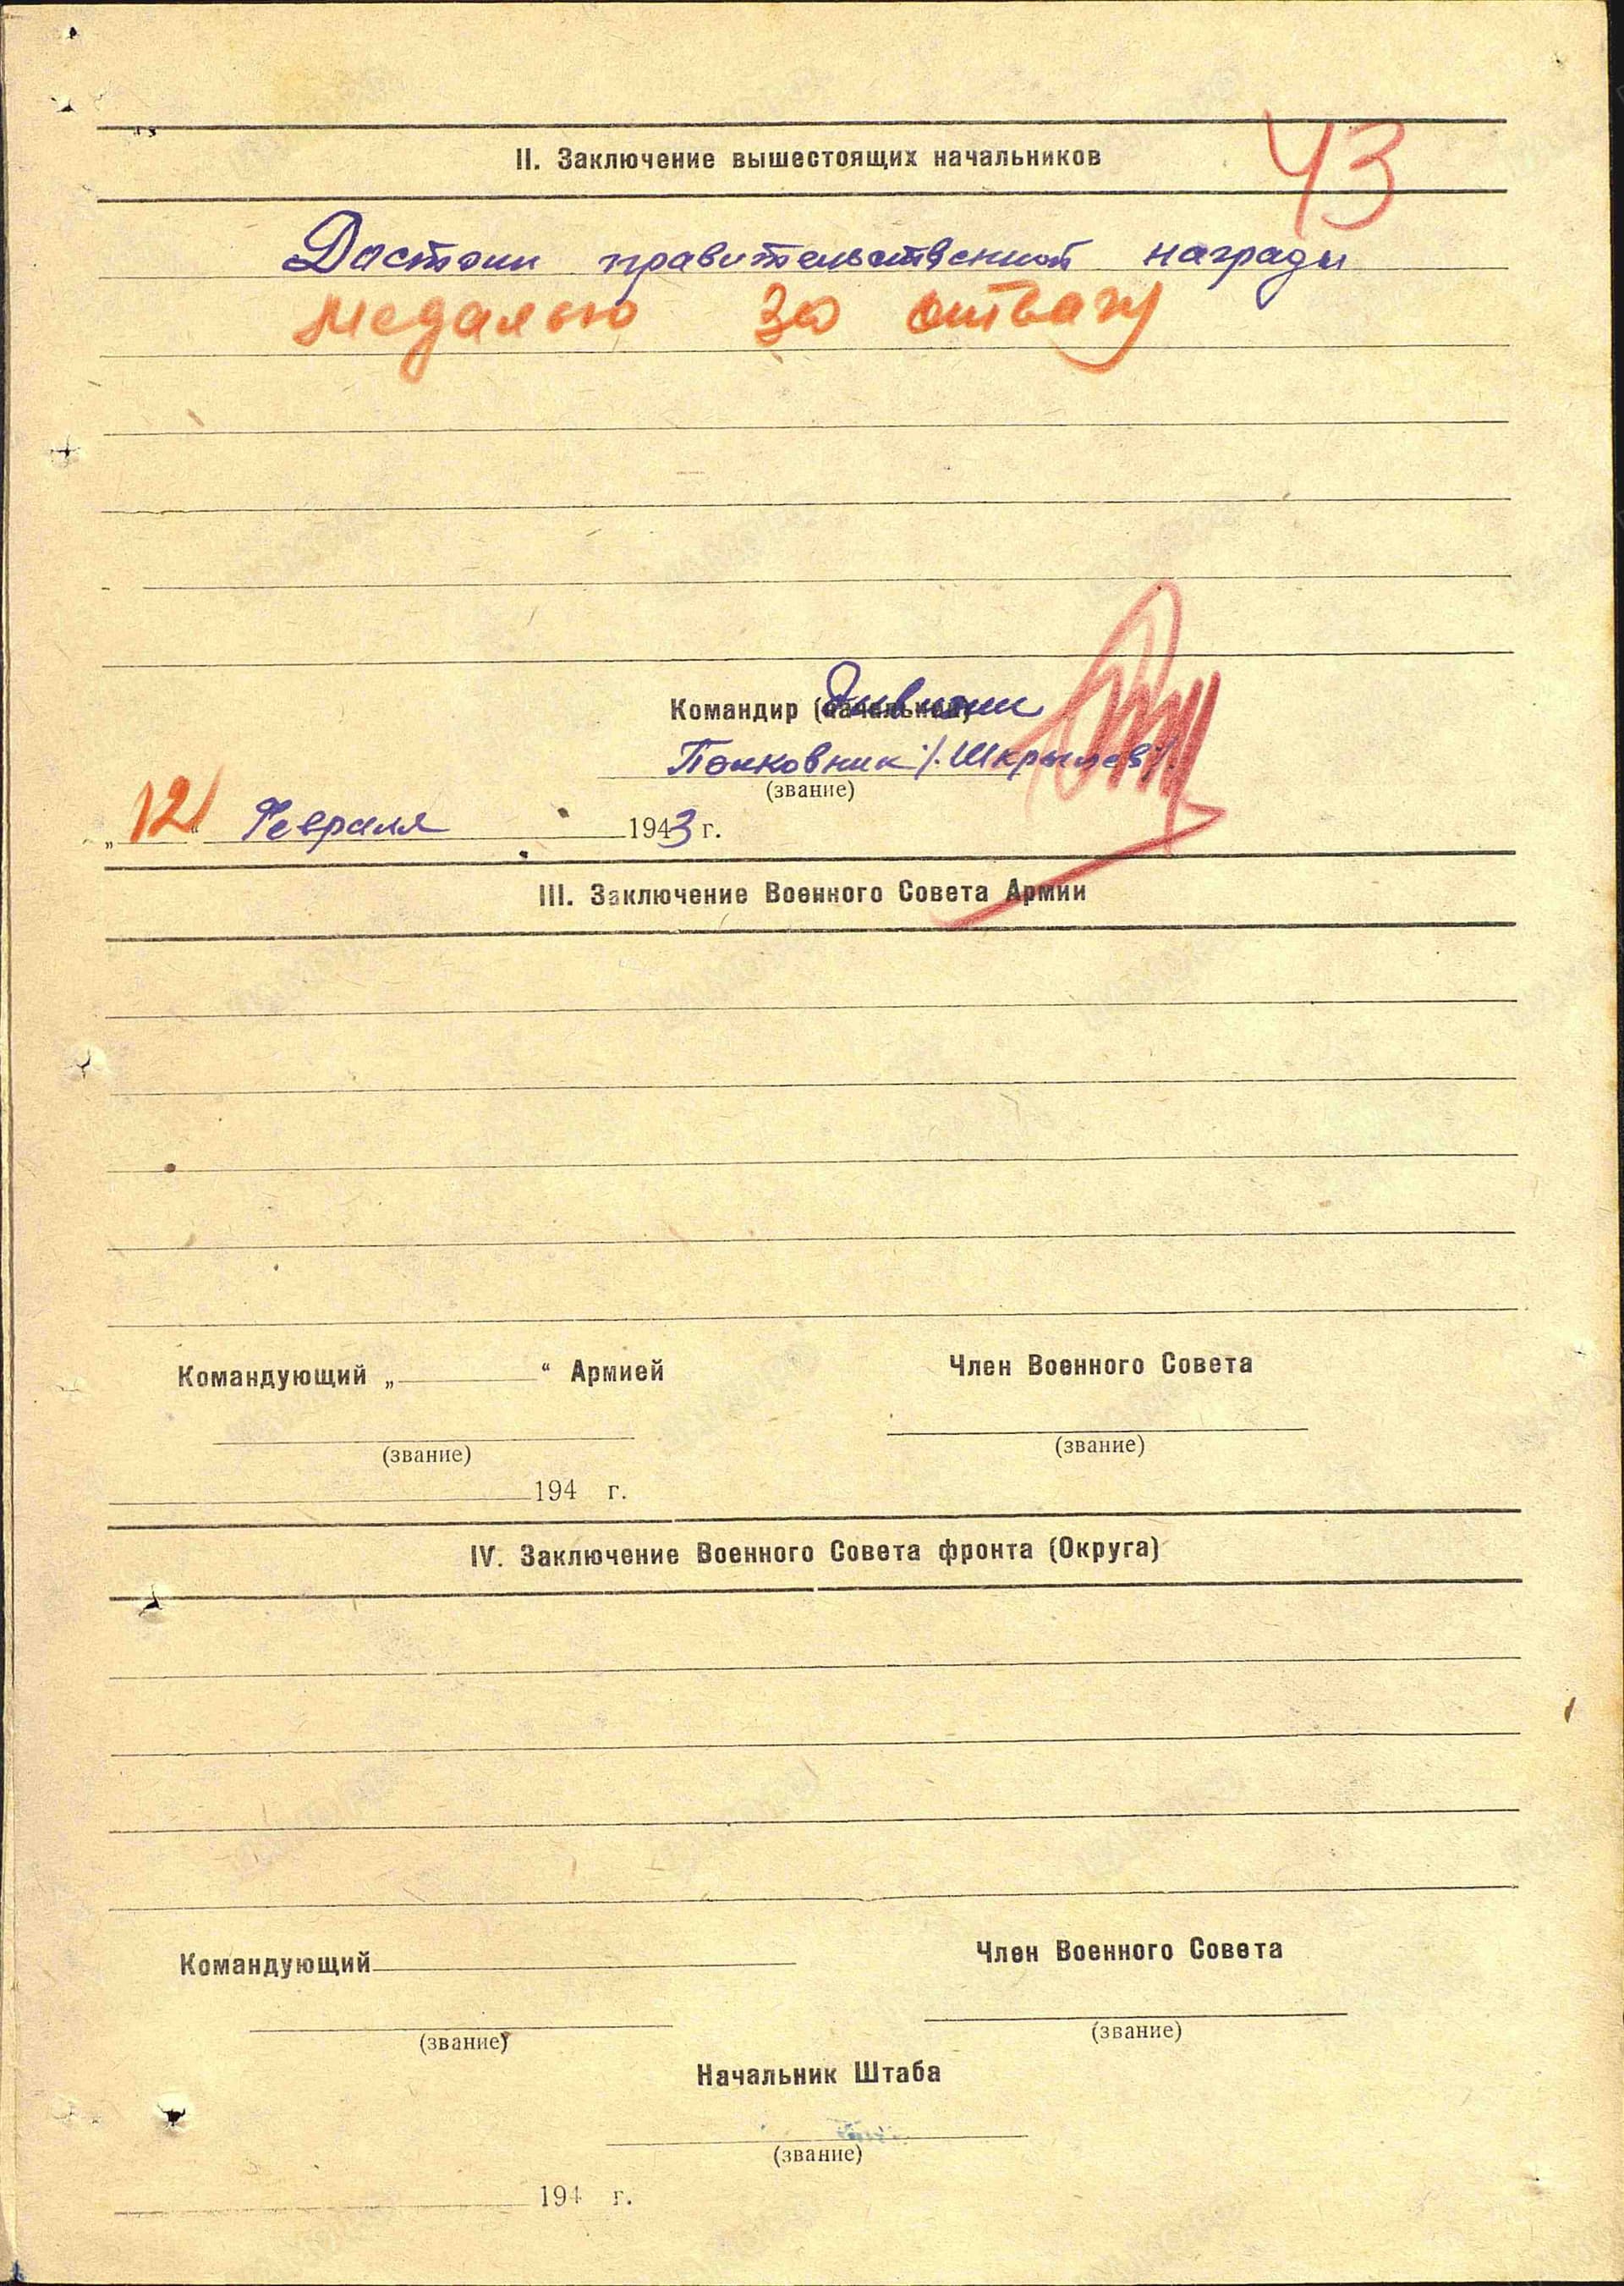 43
II. Заключение вышестоящих начальников
Достоин правительственной награды
медалью За отвагу
Командир (начальник) дивизии
Полковник /. Шкрылев/.
(звание)
„12“ Февраля 1943 г.
III. Заключение Военного Совета Армии
Командующий „ “ Армией Член Военного Совета
(звание) (звание)
194 г.
IV. Заключение Военного Совета фронта (Округа)
Командующий Член Военного Совета
(звание) (звание)
Начальник Штаба
(звание)
194 г.